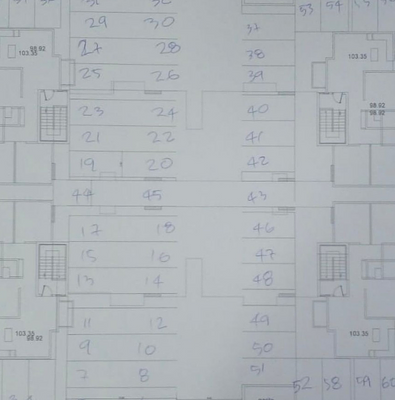 53 54
29 30 37
27 28 38
98.92 103.35 103.35
25 26 39
23 24 40
98.92
98.92
21 22 41
19 20 42
44 45 43
17 18 46
15 16 47
13 14 48
11 12 49
103.35 98.92 103.35
9 10 50
7 8 51
52 58 59 60